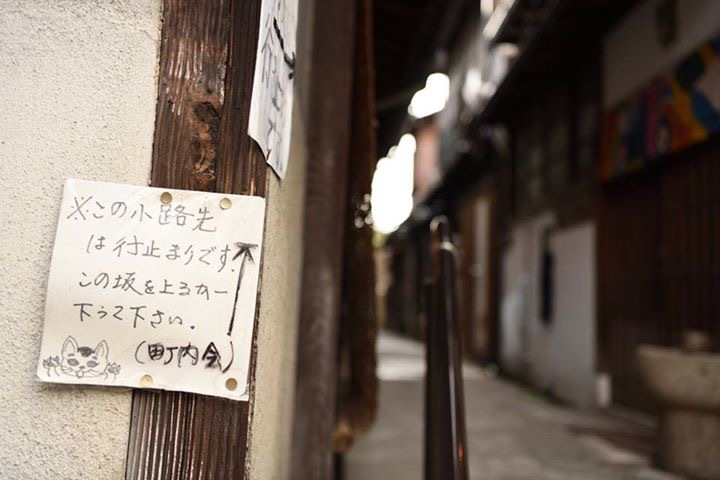 ※この小路先
は行止まりです。
この坂を上るか
下って下さい。
(町内会)